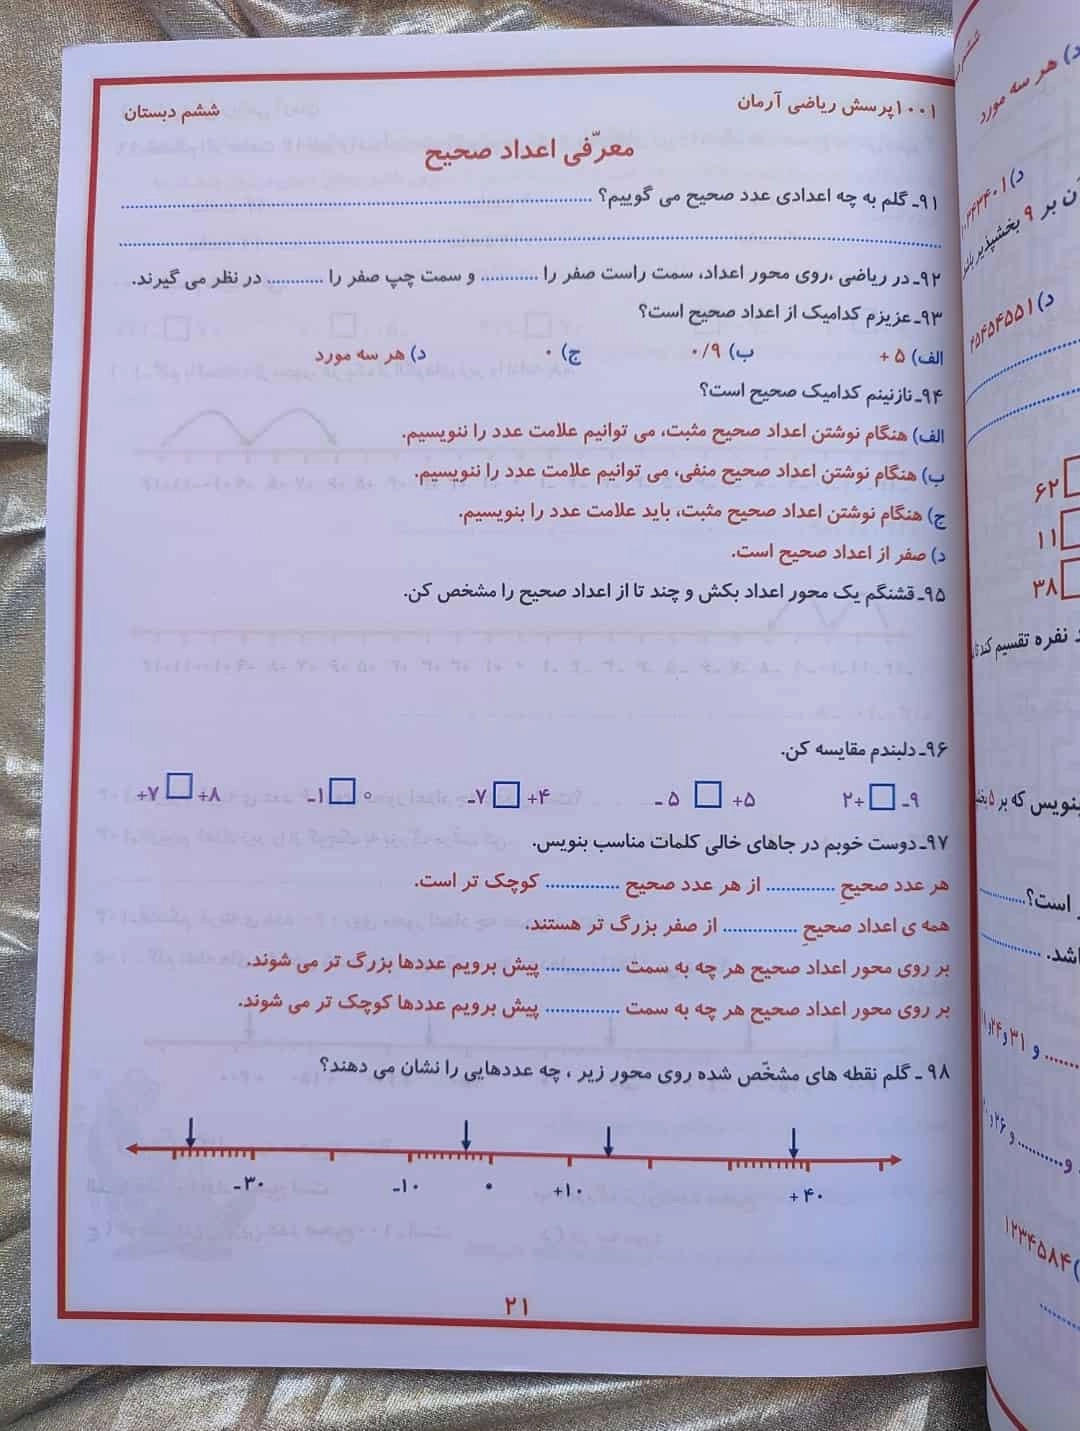 ۱۰۰۱پرسش ریاضی آرمان
ششم دبستان
معرّفی اعداد صحیح
۹۱ـ گلم به چه اعدادی عدد صحیح می گوییم؟ ............
............
۹۲ـ در ریاضی ،روی محور اعداد، سمت راست صفر را ............ و سمت چپ صفر را ............ در نظر می گیرند.
۹۳ـ عزیزم کدامیک از اعداد صحیح است؟
الف) ۵ + ب) ۰/۹ ج) ۰ د) هر سه مورد
۹۴ـ نازنینم کدامیک صحیح است؟
الف) هنگام نوشتن اعداد صحیح مثبت، می توانیم علامت عدد را ننویسیم.
ب) هنگام نوشتن اعداد صحیح منفی، می توانیم علامت عدد را ننویسیم.
ج) هنگام نوشتن اعداد صحیح مثبت، باید علامت عدد را بنویسیم.
د) صفر از اعداد صحیح است.
۹۵ـ قشنگم یک محور اعداد بکش و چند تا از اعداد صحیح را مشخص کن.
۹۶ـ دلبندم مقایسه کن.
+۷ □ +۸ -۱ □ ۰ -۷ □ +۴ - ۵ □ +۵ ۲+ □ ۹-
۹۷ـ دوست خوبم در جاهای خالی کلمات مناسب بنویس.
هر عدد صحیحِ ............ از هر عدد صحیح ............ کوچک تر است.
همه ی اعداد صحیحِ ............ از صفر بزرگ تر هستند.
بر روی محور اعداد صحیح هر چه به سمت ............ پیش برویم عددها بزرگ تر می شوند.
بر روی محور اعداد صحیح هر چه به سمت ............ پیش برویم عددها کوچک تر می شوند.
۹۸ ـ گلم نقطه های مشخّص شده روی محور زیر ، چه عددهایی را نشان می دهند؟
-۳۰ -۱۰ ۰ +۱۰ +۴۰
۲۱
د) هر سه مورد
بر ۹ بخشپذیر
د) ۴۵۴۵۴۵۵۱
۶۲
۱۱
۳۸
نفره تقسیم کند
بنویس که بر ۵
است؟............
باشد. ............
............ و ۳۱ و ۲۴ و
و............ و ۲۶ و
۱۲۳۴۵۸۴